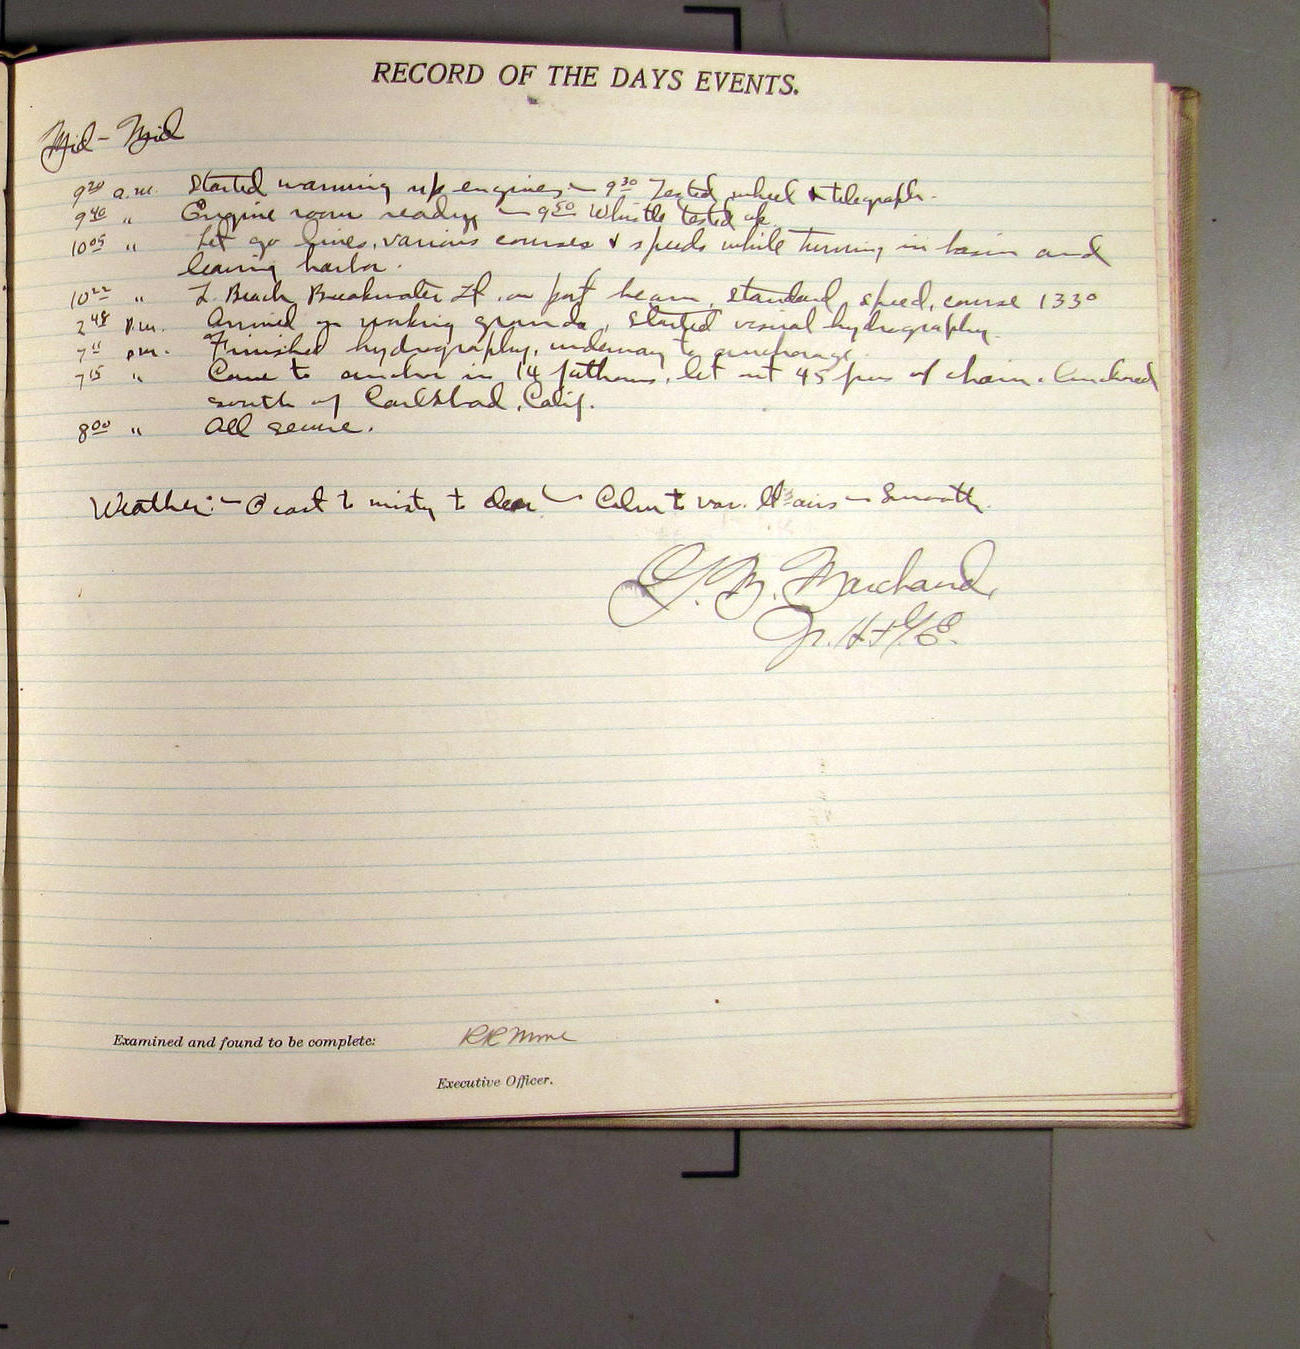 RECORD OF THE DAYS EVENTS.
Mid - Mid
9 20 a.m. Started warming up engines - 9 30 Tested wheel & telegraph.
9 40 " Engine room ready - 9 50 Whistle tested ok
10 05 " Let go lines, various courses & speeds while turning in basin and
leaving harbor.
10 22 " L. Beach Breakwater Lt. on port beam, standard speed, course 133°
2 48 p.m. Arrived on working grounds, started visual hydrography.
7 11 p.m. Finished hydrography, underway to anchorage.
7 15 " Came to anchor in 14 fathoms, let out 45 fms of chain. Anchored
south of Carlsbad, Calif.
8 00 " All secure.
Weather:- O'cast to misty to clear - Calm to var. lt airs - Smooth.
B. Marchand,
Jr. H. & G. E.
Examined and found to be complete:
Executive Officer.